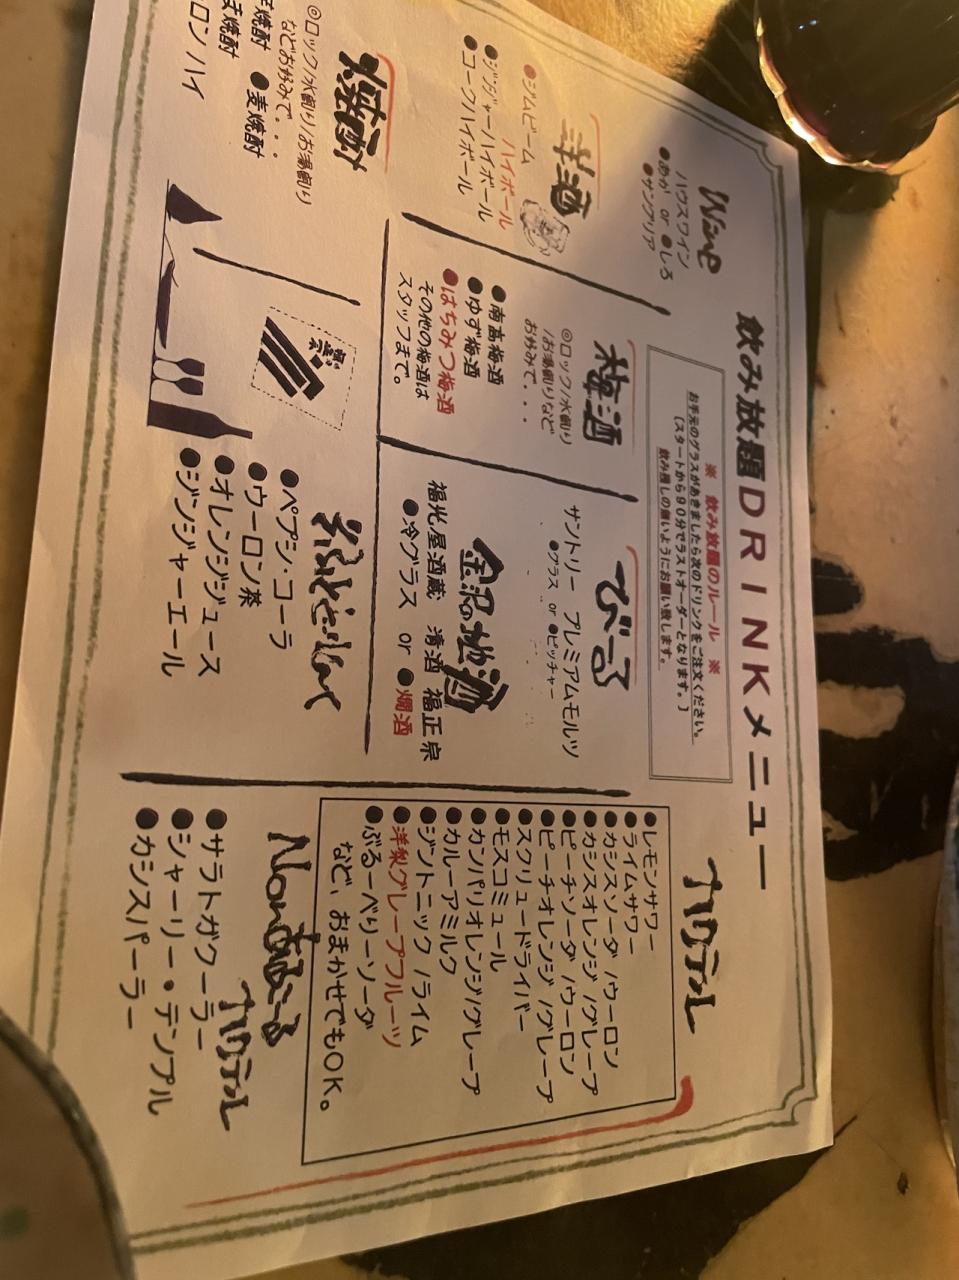 飲み放題DRINKメニュー
※ 飲み放題のルール ※
お手元のグラスがあきましたら次のドリンクをご注文ください。
(スタートから90分でラストオーダーとなります。)
飲み残しの無いようにお願い致します。
Wine
ハウスワイン
●あか or ●しろ
●サングリア
洋酒
●ジムビーム
ハイボール
●ジンジャーハイボール
●コークハイボール
焼酎
◎ロック/水割り/お湯割り
などお好みで...
焼酎 ●麦焼酎
焼酎
ロンハイ
梅酒
◎ロック/水割り
/お湯割りなど
お好みで...
●南高梅酒
●ゆず梅酒
●はちみつ梅酒
その他の梅酒は
スタッフまで。
びーる
サントリー プレミアムモルツ
●グラス or ●ピッチャー
金沢の地酒
福光屋酒蔵 清酒 福正宗
●冷グラス or ●燗酒
そふとどりんく
●ペプシ・コーラ
●ウーロン茶
●オレンジジュース
●ジンジャーエール
カクテル
●レモンサワー
●ライムサワー
●カシスソーダ/ウーロン
●カシスオレンジ/グレープ
●ピーチソーダ/ウーロン
●ピーチオレンジ/グレープ
●スクリュードライバー
●モスコミュール
●カンパリオレンジ/グレープ
●カルーアミルク
●ジントニック/ライム
●洋梨グレープフルーツ
●ぶるーべりーソーダ
など、おまかせでもOK。
Nonあるこーる
カクテル
●サラトガクーラー
●シャーリー・テンプル
●カシスパーラー